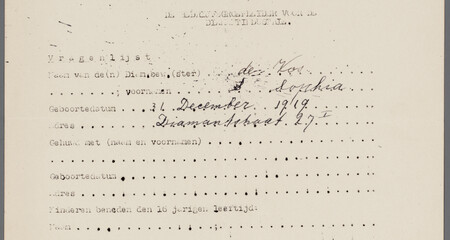 Vragenlijst
Naam van de(n) Diam.bew.(ster) den Kor
; voornamen Sophia
Geboortedatum 11 December 1919
Adres Diamantstraat 27 I
Gehuwd met (naam en voornamen)
Geboortedatum
Adres
Kinderen beneden den 16 jarigen leeftijd:
Naam